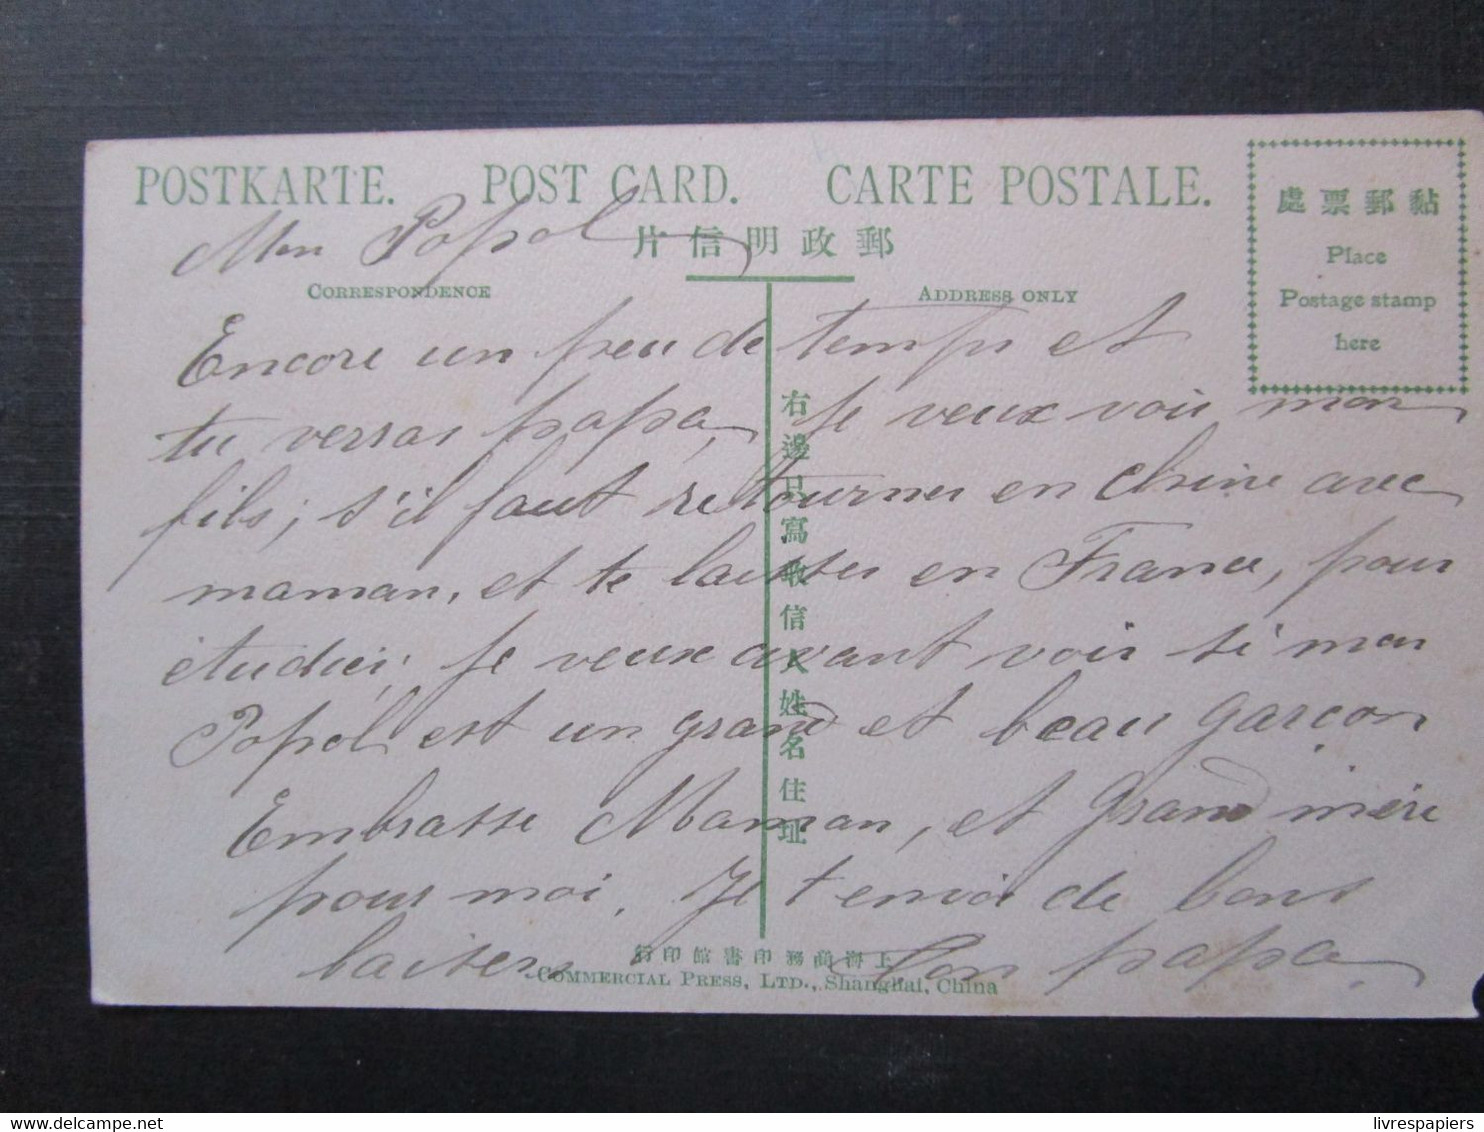 POSTKARTE. POST CARD. CARTE POSTALE.
郵政明信片
CORRESPONDENCE
ADDRESS ONLY
黏郵票處
Place
Postage stamp
here
Mon Popol
Encore un peu de temps et
tu verras papa, je veux voir mon
fils; s'il faut retourner en chine avec
maman, et te laisser en France, pour
étudier; je veux avant voir si mon
Popol est un grand et beau garçon
Embrasse Maman, et Grand mère
pour moi. Je t'envoie de bons
baisers Ton papa
右邊只寫收信人姓名住址
上海商務印書館印行
COMMERCIAL PRESS, LTD., Shanghai, China
livrespapiers
delcampe.net